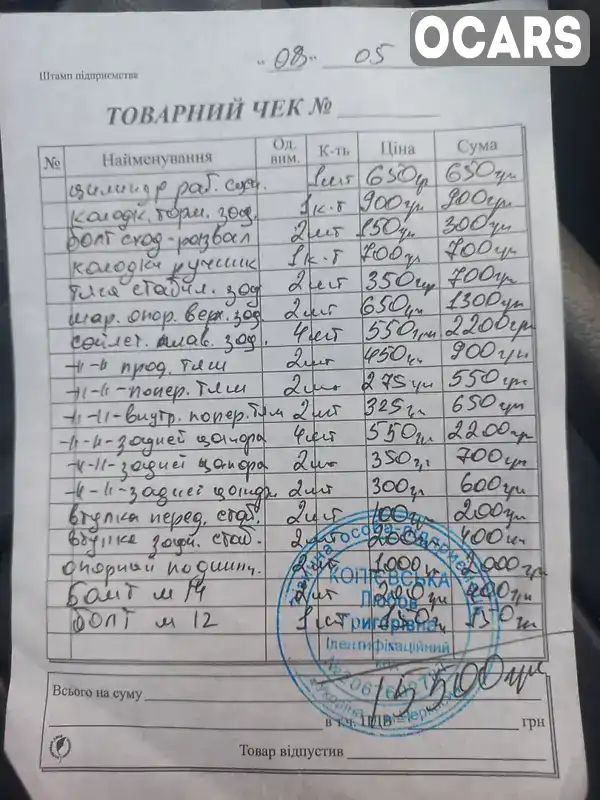 OCARS
"08" 05
Штамп підприємства
ТОВАРНИЙ ЧЕК №
№ Найменування Од. вим. К-ть Ціна Сума
цилиндр раб. сцеп. 1шт 650гр 650грн
колодк. торм. зад. 1к-т 900грн 900грн
болт сход-розвал 2шт 150грн 300грн
колодки ручник 1к-т 700грн 700грн
тяга стабил. зад 2шт 350грн 700грн
шар. опор. верх. зад 2шт 650грн 1300грн
сайлет. плав. зад. 4шт 550грн 2200грн
-//-//- прод. тяги 2шт 450грн 900грн
-//-//-попер. тяги 2шт 275грн 550грн
-//-//-внутр. попер. тяги 2шт 325гр 650грн
-//-//-задней цапфы 4шт 550гр 2200грн
-//-//-задней цапфы 2шт 350гр 700грн
-//-//-задней цапфы 2шт 300гр 600грн
втулка перед. стаб. 2шт 100грн 200грн
втулка задн. стаб. 2шт 200грн 400грн
опорный подшипн. 2шт 1000грн 2000грн
Болт м 14
болт м 12 1шт
15500грн
КОПІЄВСЬКА
Григорівна
Ідентифікаційний
Всього на суму
в т.ч. ПДВ грн
Товар відпустив